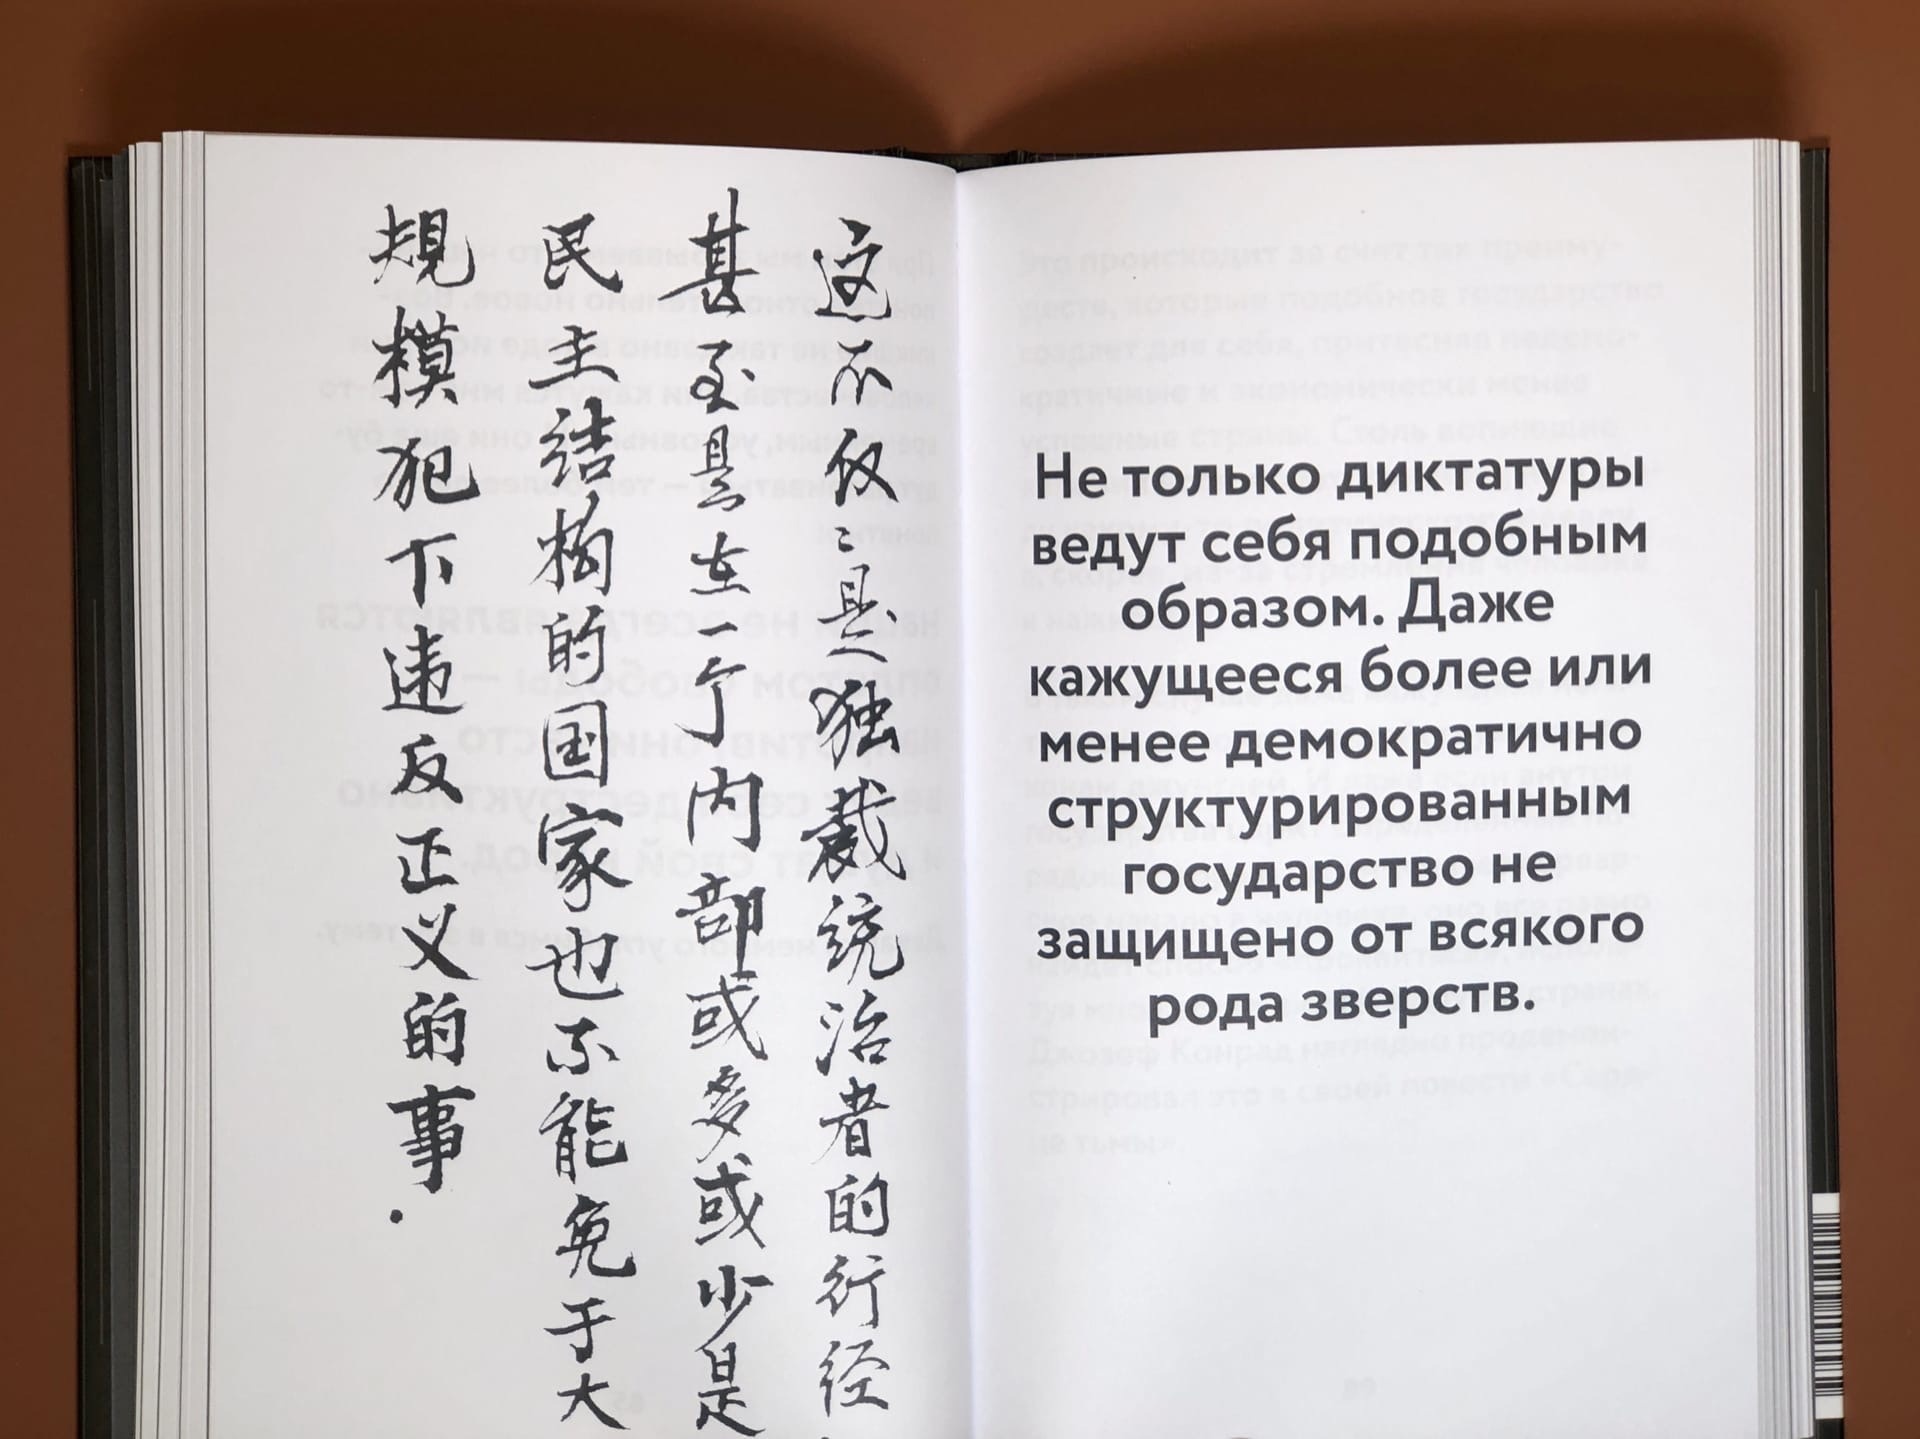 这不仅仅是独裁统治者的行径,
甚至是在一个内部或多或少是
民主结构的国家也不能免于大
规模犯下违反正义的事.
Не только диктатуры
ведут себя подобным
образом. Даже
кажущееся более или
менее демократично
структурированным
государство не
защищено от всякого
рода зверств.